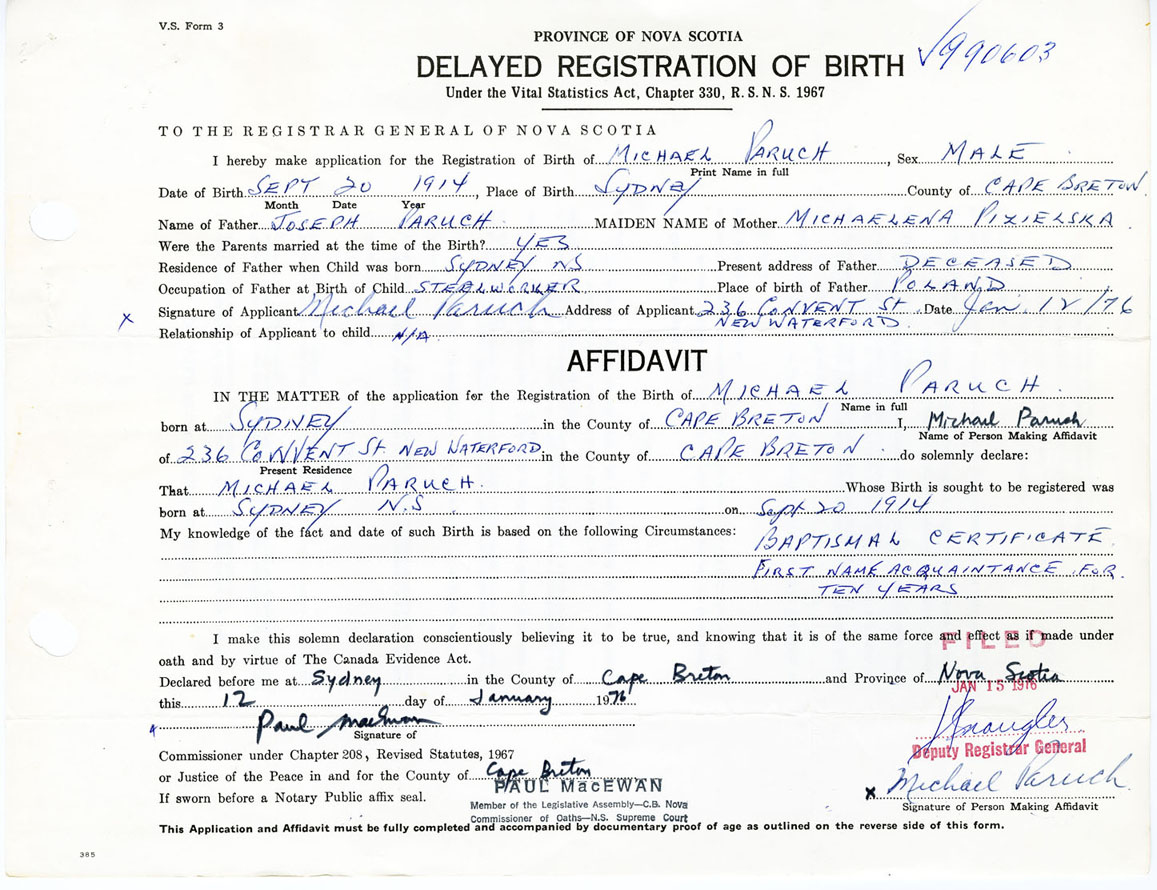 V.S. Form 3
PROVINCE OF NOVA SCOTIA
DELAYED REGISTRATION OF BIRTH √990603
Under the Vital Statistics Act, Chapter 330, R.S.N.S. 1967
TO THE REGISTRAR GENERAL OF NOVA SCOTIA
I hereby make application for the Registration of Birth of MICHAEL PARUCH, Sex MALE
Print Name in full
Date of Birth SEPT 20 1914, Place of Birth SYDNEY County of CAPE BRETON
Month Date Year
Name of Father JOSEPH PARUCH MAIDEN NAME of Mother MICHAELENA PIZIELSKA
Were the Parents married at the time of the Birth? YES
Residence of Father when Child was born SYDNEY NS Present address of Father DECEASED
Occupation of Father at Birth of Child STEELWORKER Place of birth of Father POLAND
x Signature of Applicant Michael Paruch Address of Applicant 236 CONVENT St Date Jan. 12/76
NEW WATERFORD
Relationship of Applicant to child N/A
AFFIDAVIT
IN THE MATTER of the application for the Registration of the Birth of MICHAEL PARUCH.
Name in full
born at SYDNEY in the County of CAPE BRETON I, Michael Paruch
Name of Person Making Affidavit
of 236 CONVENT St. NEW WATERFORD in the County of CAPE BRETON do solemnly declare:
Present Residence
That MICHAEL PARUCH. Whose Birth is sought to be registered was
born at SYDNEY N.S. on Sept 20 1914
My knowledge of the fact and date of such Birth is based on the following Circumstances: BAPTISMAL CERTIFICATE.
FIRST NAME ACQUAINTANCE FOR
TEN YEARS
I make this solemn declaration conscientiously believing it to be true, and knowing that it is of the same force and effect as if made under
FILED
oath and by virtue of The Canada Evidence Act.
Declared before me at Sydney in the County of Cape Breton and Province of Nova Scotia
JAN 15 1976
this 12 day of January 1976
x Paul MacEwan
Signature of
Deputy Registrar General
Commissioner under Chapter 208, Revised Statutes, 1967
or Justice of the Peace in and for the County of Cape Breton
PAUL MacEWAN
x Michael Paruch
If sworn before a Notary Public affix seal.
Member of the Legislative Assembly—C.B. Nova
Signature of Person Making Affidavit
Commissioner of Oaths—N.S. Supreme Court
This Application and Affidavit must be fully completed and accompanied by documentary proof of age as outlined on the reverse side of this form.
385